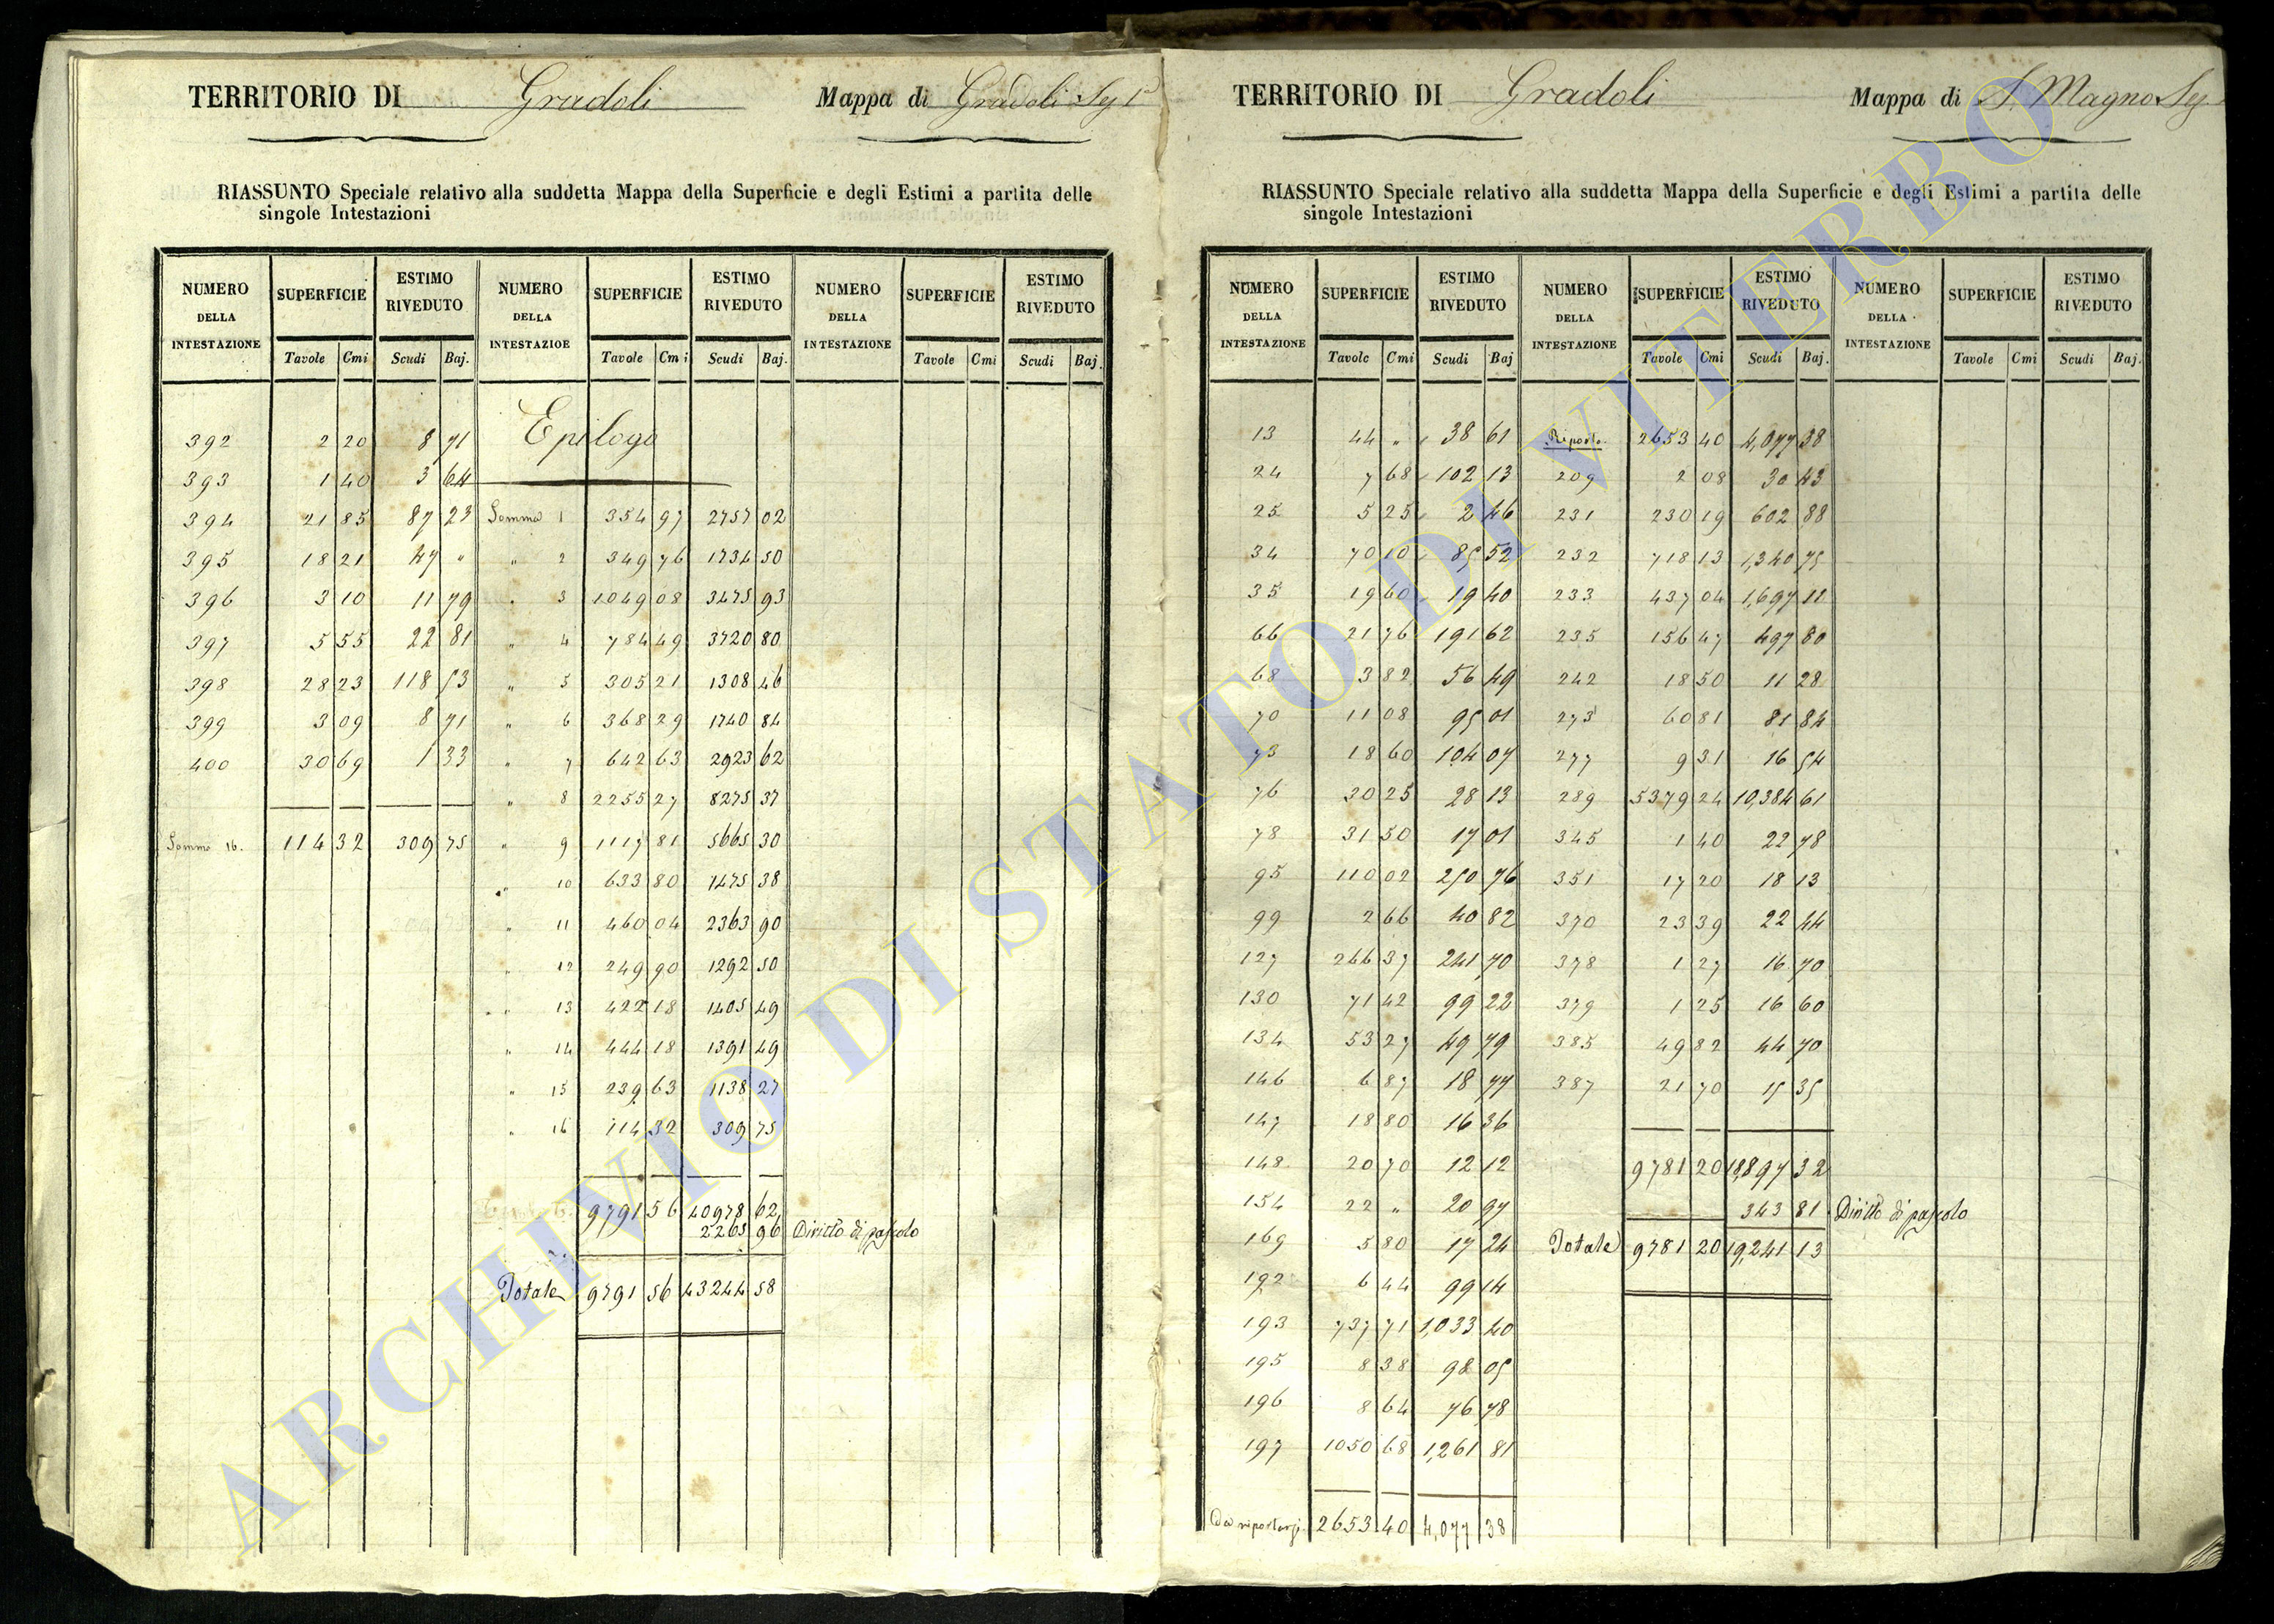 TERRITORIO DI Gradoli Mappa di Gradoli Sez 1ª
RIASSUNTO Speciale relativo alla suddetta Mappa della Superficie e degli Estimi a partita delle
singole Intestazioni
NUMERO DELLA INTESTAZIONE SUPERFICIE Tavole Cmi ESTIMO RIVEDUTO Scudi Baj. NUMERO DELLA INTESTAZIOE SUPERFICIE Tavole Cmi ESTIMO RIVEDUTO Scudi Baj. NUMERO DELLA INTESTAZIONE SUPERFICIE Tavole Cmi ESTIMO RIVEDUTO Scudi Baj.
392 2 20 8 71 Epilogo
393 1 40 3 64
394 21 85 87 23 Somma 1 354 97 2757 02
395 18 21 47 " " 2 349 76 1734 50
396 3 10 11 79 " 3 1049 08 3475 93
397 5 55 22 81 " 4 784 49 3720 80
398 28 23 118 53 " 5 305 21 1308 46
399 3 09 8 71 " 6 368 29 1740 84
400 30 69 1 33 " 7 642 63 2923 62
" 8 2255 27 8275 37
Somma 16. 114 32 309 75 " 9 1117 81 5665 30
" 10 633 80 1475 38
" 11 460 04 2363 90
" 12 249 90 1292 50
" 13 422 18 1405 49
" 14 444 18 1391 49
" 15 239 63 1138 27
" 16 114 32 309 75
9791 56 40978 62
2265 96 Diritto di pascolo
Totale 9791 56 43244 58
TERRITORIO DI Gradoli Mappa di S. Magno Sez.
RIASSUNTO Speciale relativo alla suddetta Mappa della Superficie e degli Estimi a partita delle
singole Intestazioni
NUMERO DELLA INTESTAZIONE SUPERFICIE Tavole Cmi ESTIMO RIVEDUTO Scudi Baj NUMERO DELLA INTESTAZIONE SUPERFICIE Tavole Cmi ESTIMO RIVEDUTO Scudi Baj. NUMERO DELLA INTESTAZIONE SUPERFICIE Tavole Cmi ESTIMO RIVEDUTO Scudi Baj.
13 44 " 38 61 Riporto. 2653 40 4,077 38
24 7 68 102 13 209 2 08 30 43
25 5 25 2 46 231 230 19 602 88
34 70 10 85 52 232 718 13 1,340 75
35 19 60 19 40 233 437 04 1,697 11
66 21 76 191 62 235 156 47 497 80
68 3 82 56 49 242 18 50 11 28
70 11 08 95 01 273 60 81 81 84
73 18 60 104 07 277 9 31 16 54
76 30 25 28 13 289 5379 24 10,384 61
78 31 50 17 01 345 1 40 22 78
95 110 02 250 76 351 17 20 18 13
99 2 66 40 82 370 23 39 22 44
127 246 37 241 70 378 1 27 16 70
130 71 42 99 22 379 1 25 16 60
134 53 27 49 79 385 49 82 44 70
146 6 87 18 77 387 21 70 15 35
147 18 80 16 36
148 20 70 12 12 9781 20 18,897 32
154 22 " 20 97 343 81 Diritto di pascolo
169 5 80 17 24 Totale 9781 20 19,241 13
192 6 44 99 14
193 737 71 1,033 40
195 8 38 98 05
196 8 64 76 78
197 1050 68 1,261 81
Da riportarsi. 2653 40 4,077 38
ARCHIVIO DI STATO DI VITERBO